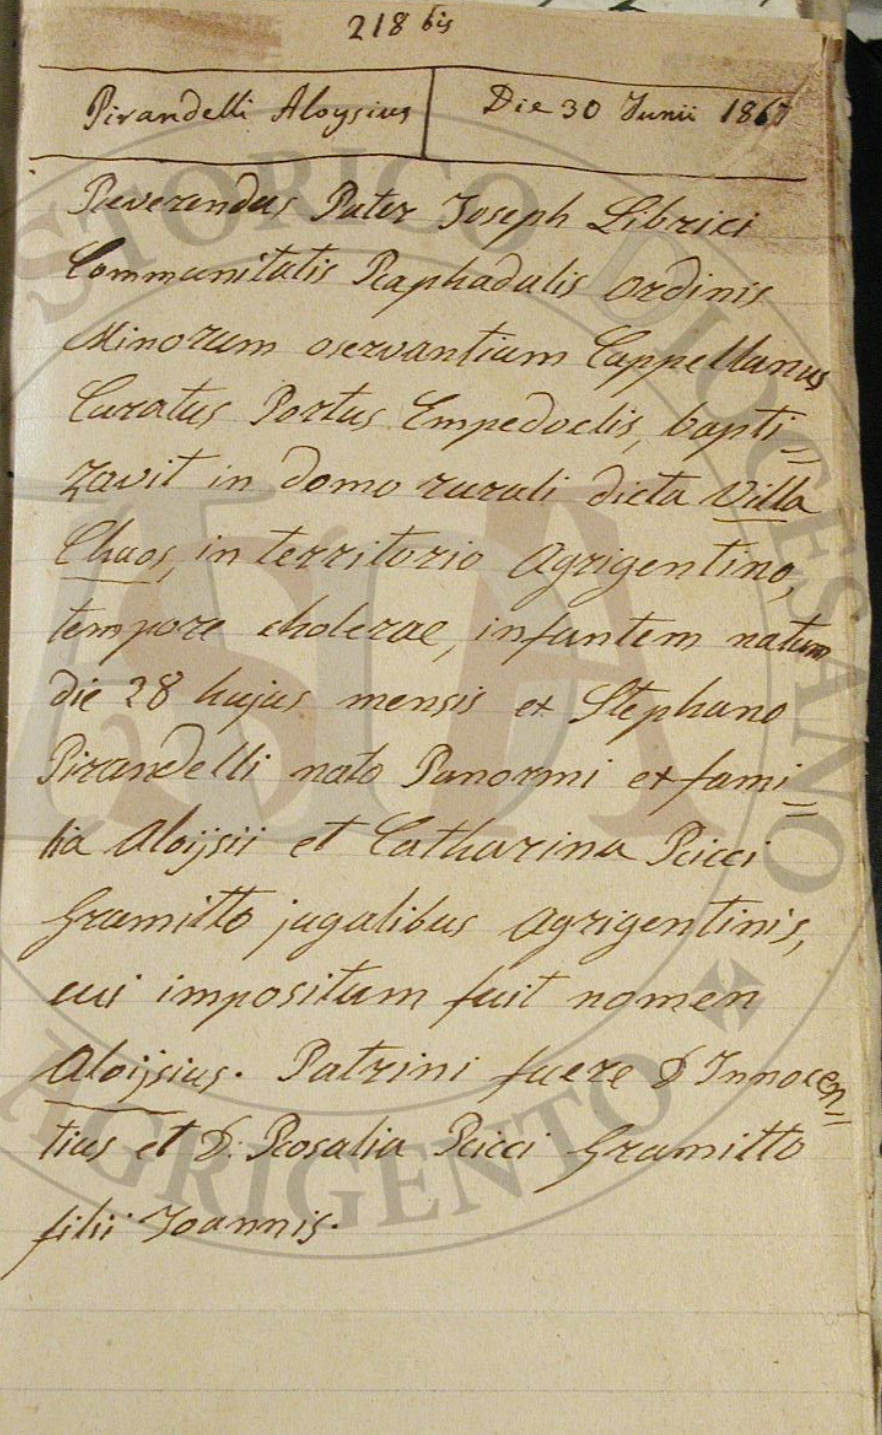 218 bis
Pirandelli Aloysius Die 30 Junii 1867
Reverendus Pater Joseph Librici
Communitatis Raphadalis Ordinis
Minorum oservantium Cappellanus
Curatus Portus Empedoclis, bapti=
zavit in domo rurali dicta Villa
Chaos, in territorio Agrigentino,
tempore cholerae, infantem natum
die 28 hujus mensis ex Stephano
Pirandelli nato Panormi ex fami=
lia Aloijsii et Catharina Ricci
Gramitto jugalibus Agrigentinis,
cui impositum fuit nomen
Aloijsius. Patrini fuere D Innocen=
tius et D: Rosalia Ricci Gramitto
filii Joannis.
STORICO DIOCESANO
ASDA
AGRIGENTO